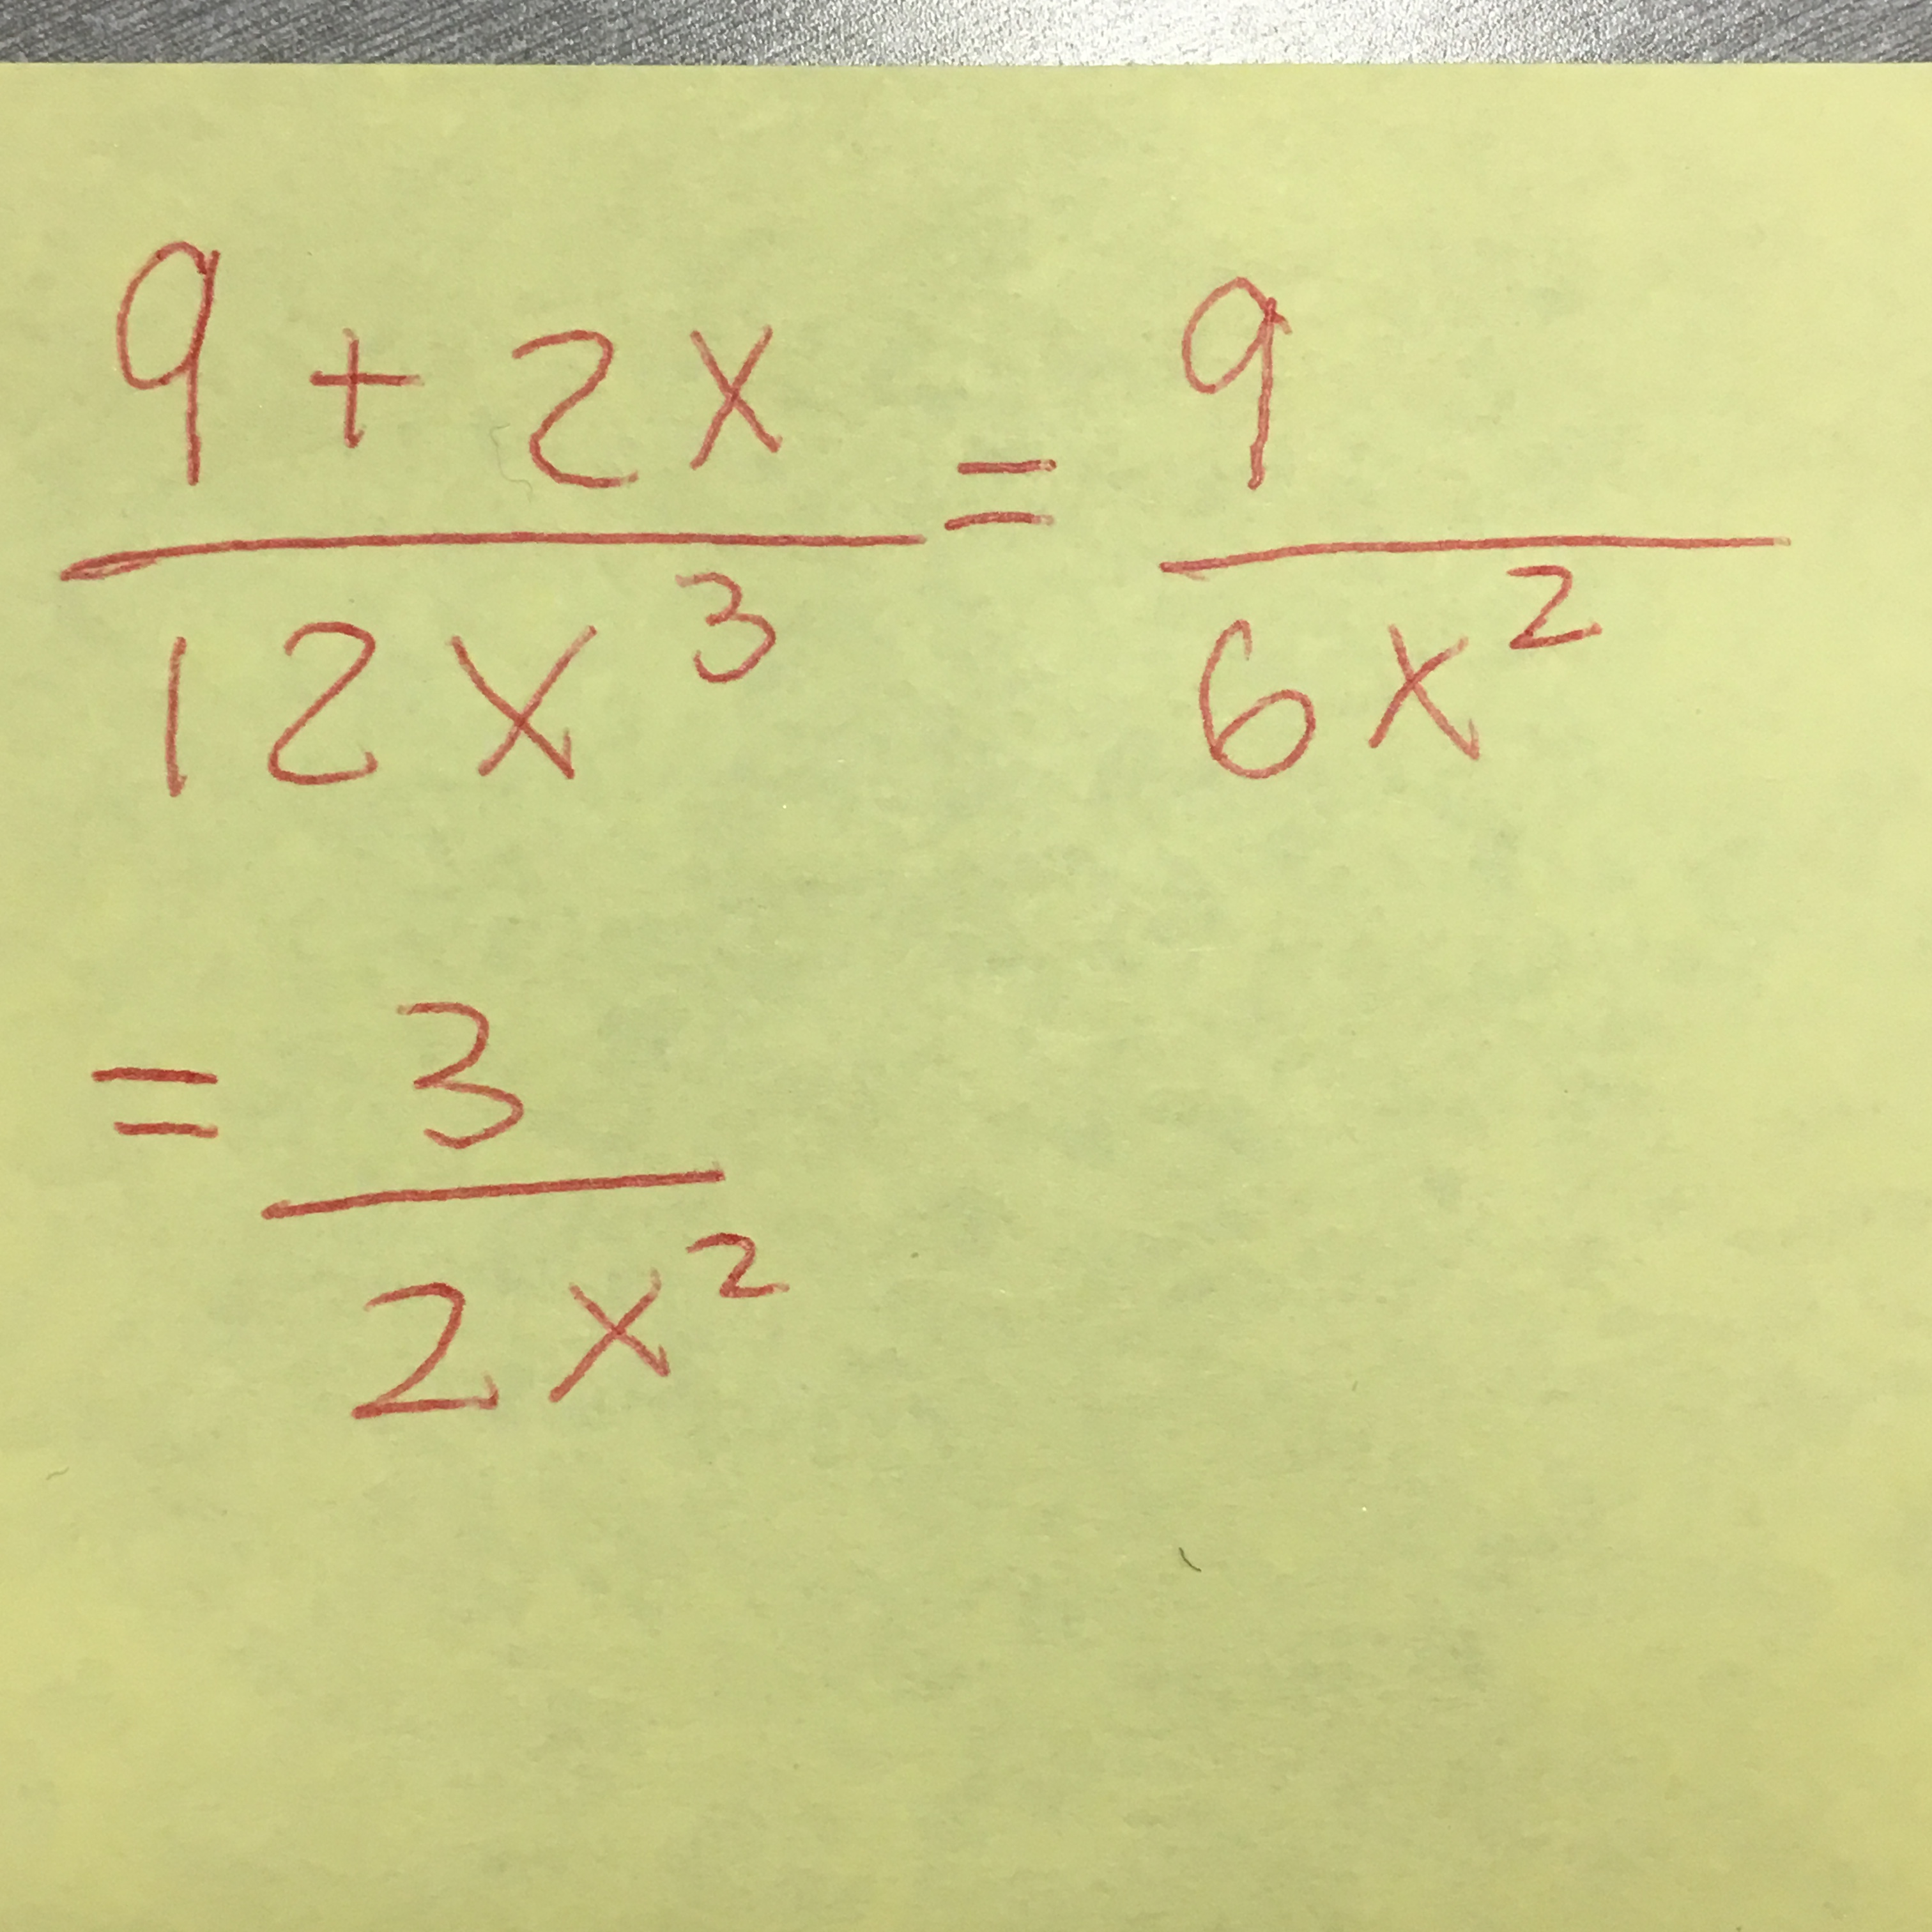 9 + 2x / 12x³ = 9 / 6x²
= 3 / 2x²